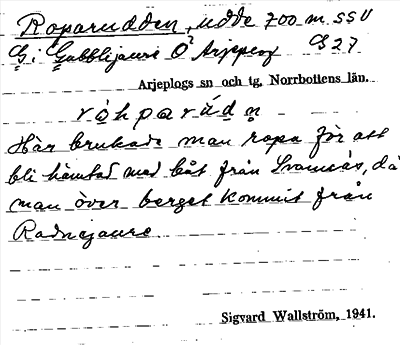 Roparudden, udde 700 m SSV
G i Gabblijaure Ö Arjeplog G 27
Arjeplogs sn och tg, Norrbottens län.
Här brukade man ropa för att
bli hämtad med båt från Svannäs, då
man över berget kommit från
Radnejaure.
Sigvard Wallström, 1941.